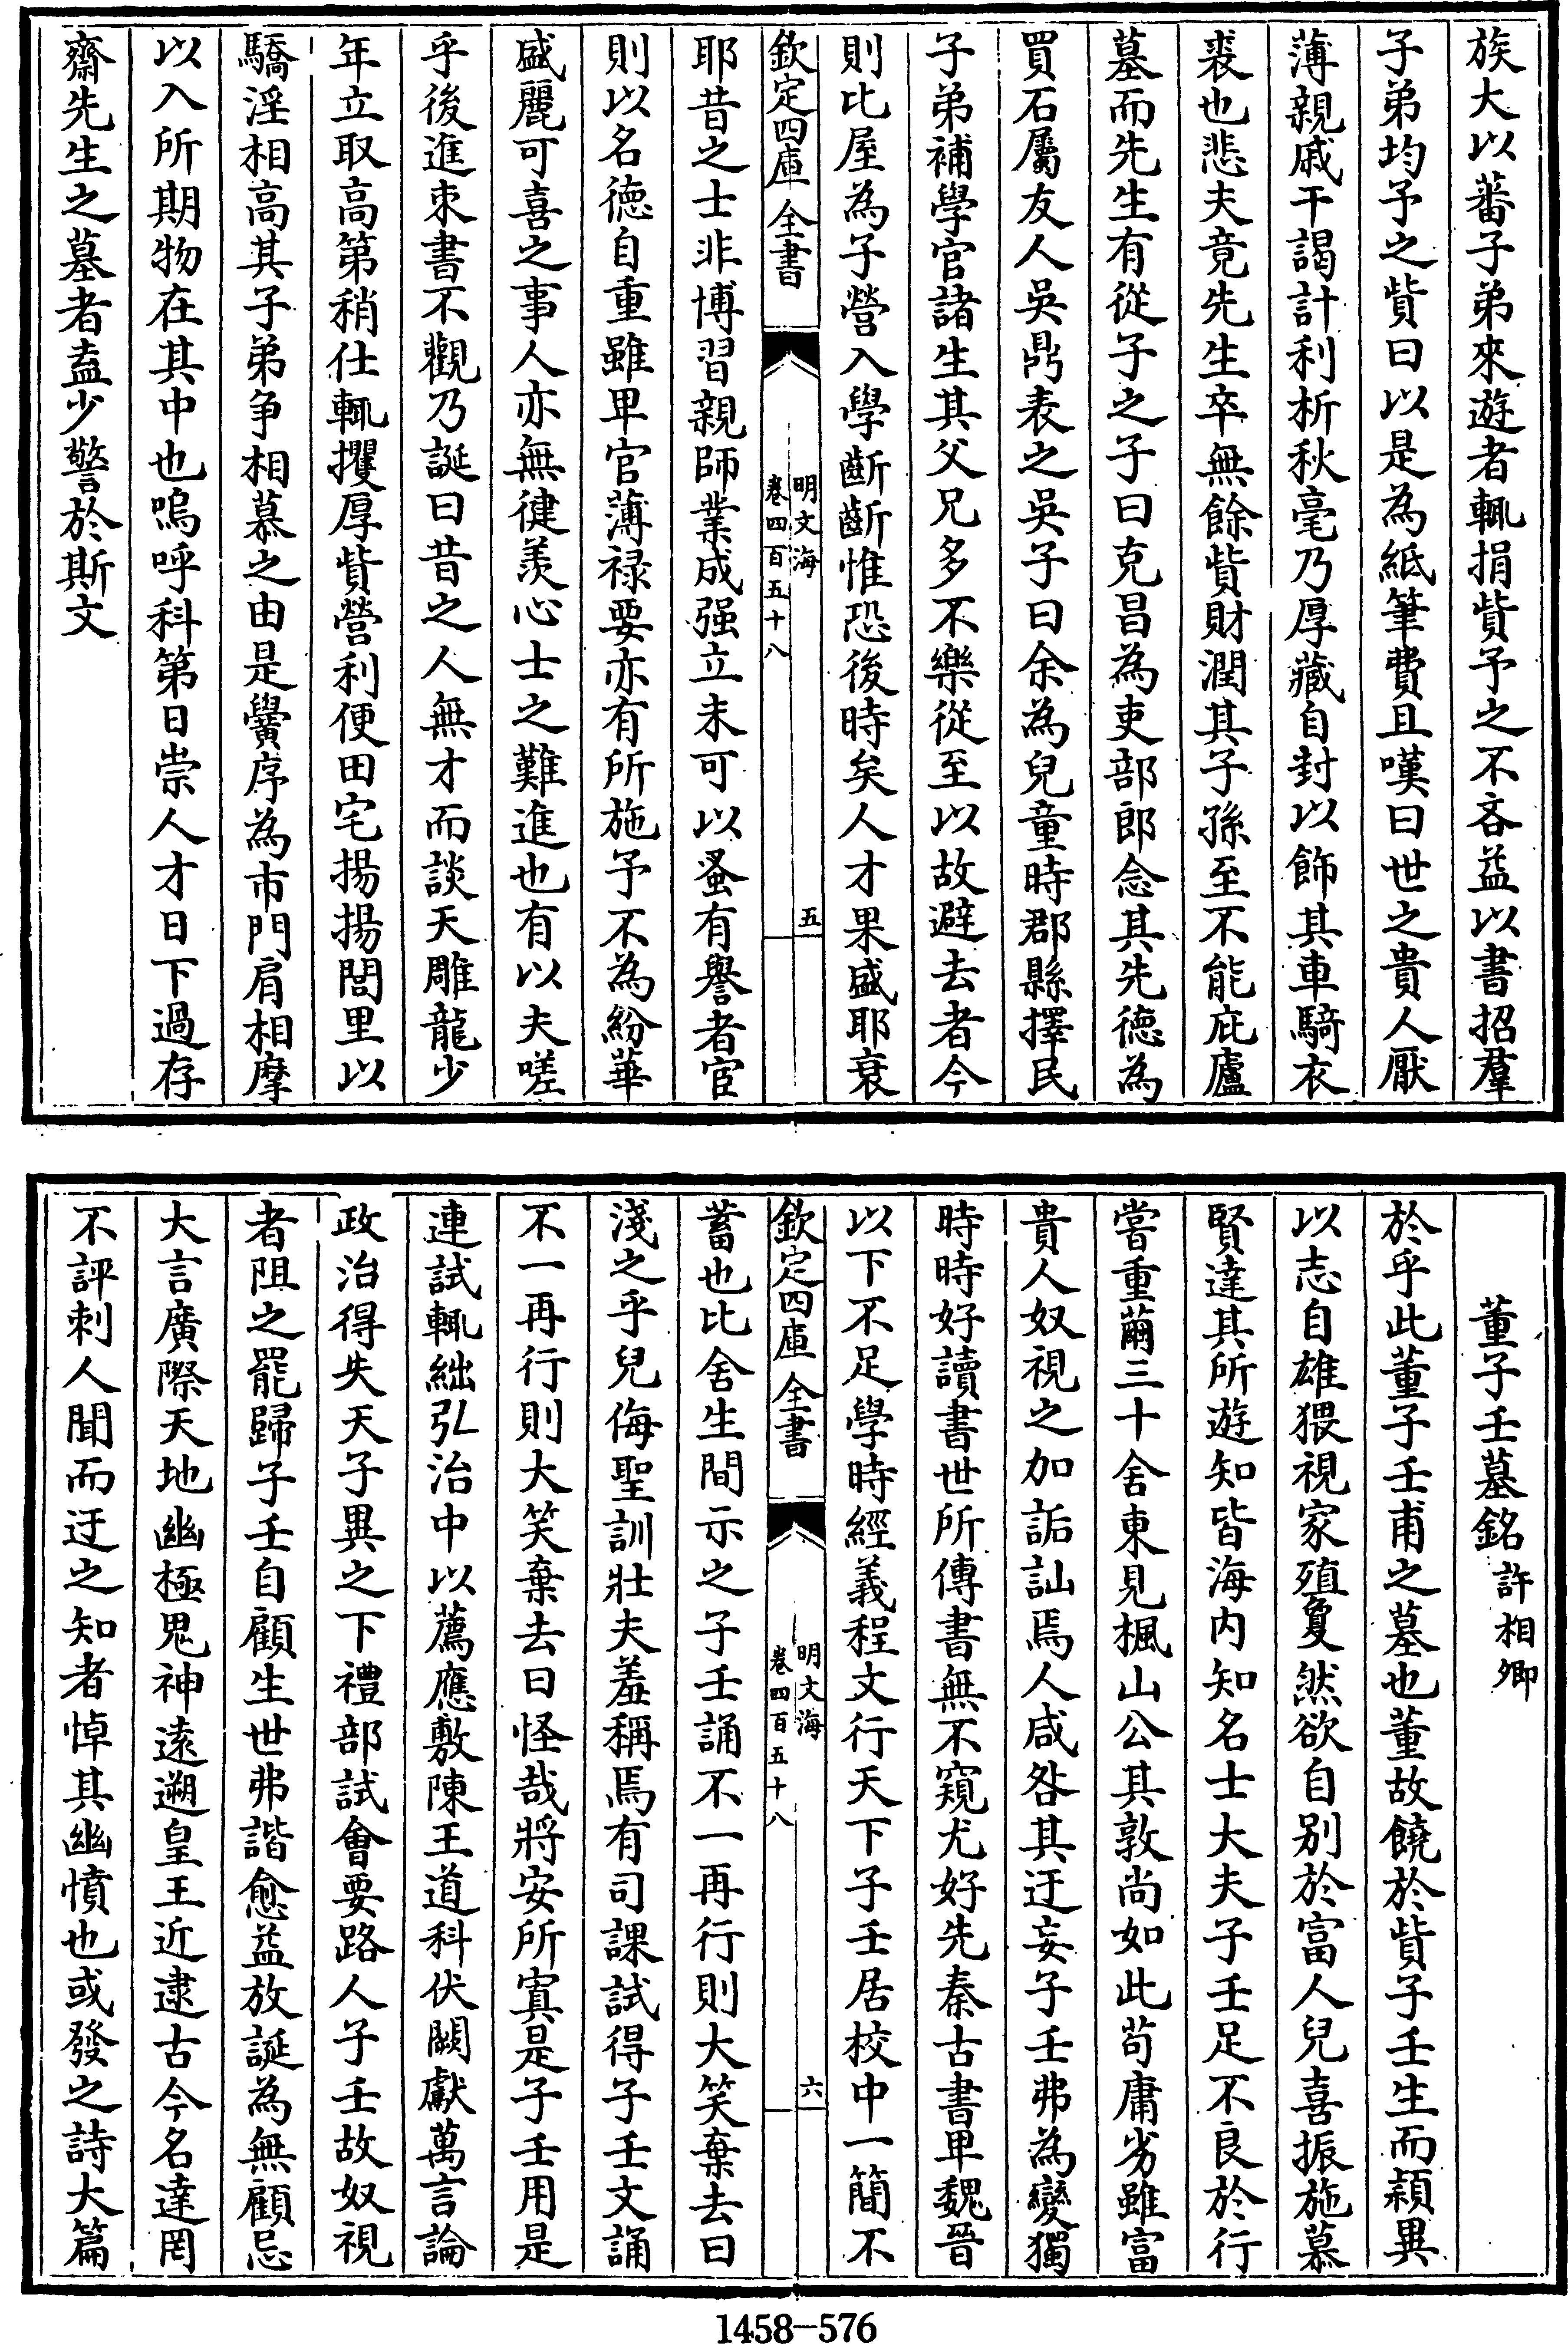 族大以蕃子弟來遊者輒捐貲予之不吝益以書招羣
子弟均予之貲曰以是為紙筆費且嘆曰世之貴人厭
薄親戚干謁計利析秋毫乃厚藏自封以飾其車騎衣
裘也悲夫竟先生卒無餘貲財潤其子孫至不能庇廬
墓而先生有從子之子曰克昌為吏部郎念其先德為
買石屬友人吳鼎表之吳子曰余為兒童時郡縣擇民
子弟補學官諸生其父兄多不樂從至以故避去者今
則比屋為子營入學齗齗惟恐後時矣人才果盛耶衰
欽定四庫全書
明文海
卷四百五十八
五
耶昔之士非博習親師業成强立未可以蚤有譽者宦
則以名德自重雖卑官薄禄要亦有所施予不為紛華
盛麗可喜之事人亦無徤羨心士之難進也有以夫嗟
乎後進束書不觀乃誕曰昔之人無才而談天雕龍少
年立取高第稍仕輒攫厚貲營利便田宅揚揚閭里以
驕淫相高其子弟争相慕之由是黌序為市門肩相摩
以入所期物在其中也嗚呼科第日崇人才日下過存
齋先生之墓者盍少警於斯文
董子壬墓銘許相卿
於乎此董子壬甫之墓也董故饒於貲子壬生而穎異
以志自雄猥視家殖敻然欲自别於富人兒喜振施慕
賢達其所遊知皆海内知名士大夫子壬足不良於行
嘗重繭三十舍東見楓山公其敦尚如此苟庸劣雖富
貴人奴視之加詬訕焉人咸咎其迂妄子壬弗為變獨
時時好讀書世所傳書無不窺尤好先秦古書卑魏晉
以下不足學時經義程文行天下子壬居校中一簡不
欽定四庫全書
明文海
卷四百五十八
六
蓄也比舍生間示之子壬誦不一再行則大笑棄去曰
淺之乎兒侮聖訓壯夫羞稱焉有司課試得子壬文誦
不一再行則大笑棄去曰怪哉將安所寘是子壬用是
連試輒絀弘治中以薦應敷陳王道科伏闕獻萬言論
政治得失天子異之下禮部試會要路人子壬故奴視
者阻之罷歸子壬自顧生世弗諧愈益放誕為無顧忌
大言廣際天地幽極鬼神遠遡皇王近逮古今名達罔
不評刺人聞而迂之知者悼其幽憤也或發之詩大篇
1458—576